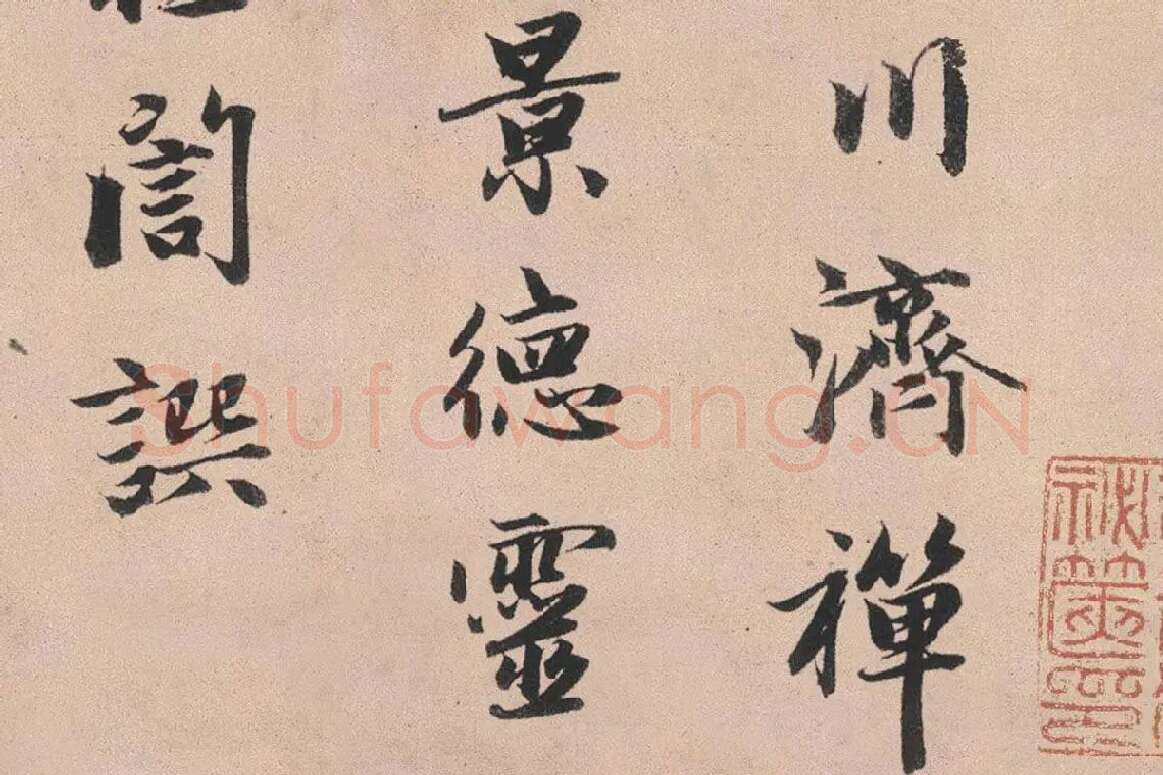 川濟禪
景德靈
訚譔
Shufawang.CN